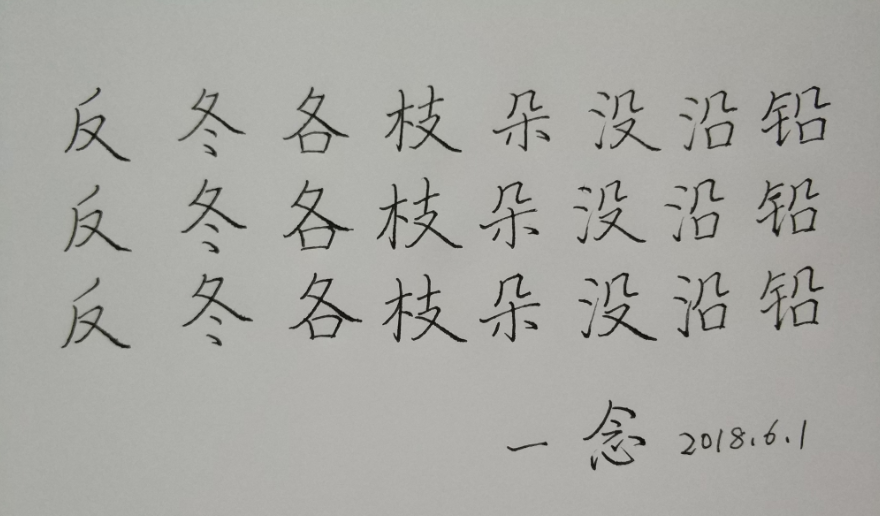 反 冬 各 枝 朵 没 沿 铅
反 冬 各 枝 朵 没 沿 铅
反 冬 各 枝 朵 没 沿 铅
一 念 2018.6.1